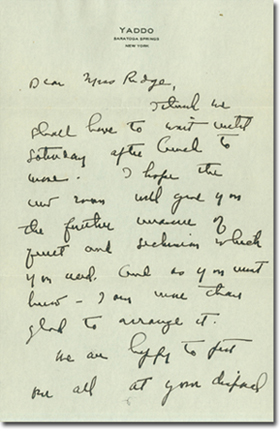 YADDO
SARATOGA SPRINGS
NEW YORK
Dear Miss Ridge,
I think we
shall have to wait until
Saturday after lunch to
move. I hope the
new room will give you
the further measure of
quiet and seclusion which
you need. And as you must
know – I am more than
glad to arrange it.
We are happy to put
our all at your disposal